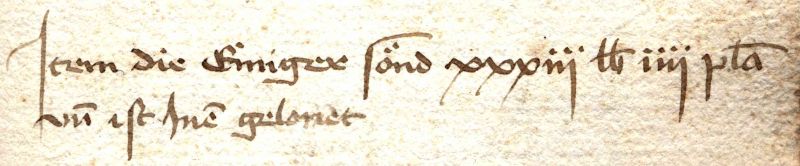 Item die Einiger sönd xxxiij lb iiij pla
vn̄ ist Inē gelonet